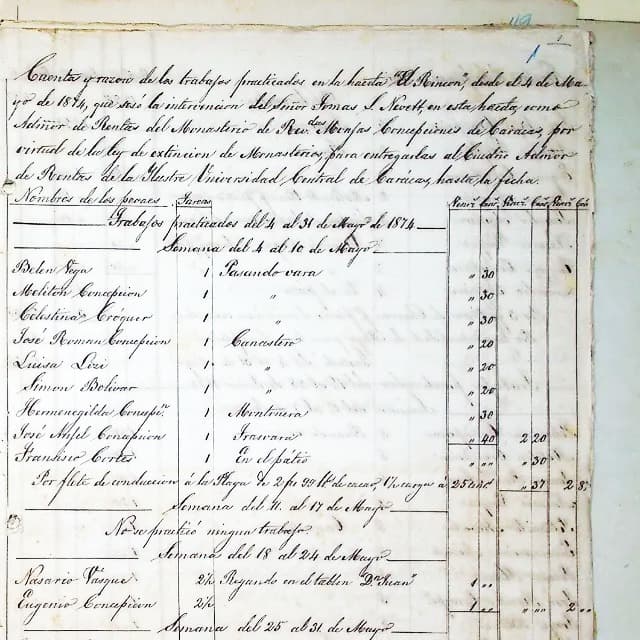 Cuenta y razon de los trabajos practicados en la hacda "El Rincon", desde el 4 de Ma-
yo de 1874, que sesó la intervencion del Señor Tomas S. Nivett, en esta hacda, como
Admor de Rentas del Monasterio de Revdas Monjas Concepciones de Carácas, por
virtud de la ley de extincion de Monasterios, para entregarlas al Ciudno Admor
de Rentas de la Ilustre Universidad Central de Carácas, hasta la fecha.
Nombres de los peones Tareas Venezs Cens Venezs Cens Venezs Cens
Trabajos practicados del 4 al 31 de Mayo de 1874
Semana del 4 al 10 de Mayo
Belen Vega 1 Pasando vara " 30
Meliton Concepcion 1 " " 30
Celestina Cróquer 1 " " 30
José Roman Concepcion 1 Canastero " 20
Luisa 1 " " 20
Simon Bolívar 1 " " 20
Hermenegilda Concepn 1 Montonera " 30
José Anjel Concepcion 1 Trasvara " 40 2 20
Fransisco Cortes 1 En el pátio " "" " 30
Por flete de conduccion á la Plaza de 2 fas 99 lbs de cacao, 1½ carga á 25 " 37 2 8
Semana del 11 al 17 de Mayo
No se practicó ningun trabajo.
Semana del 18 al 24 de Mayo
Nasario Vásque 2½ Regando en el tablon "Dn Juan" 1 ""
Eugenio Concepcion 2½ 1 "" " "" 2 ""
Semana del 25 al 31 de Mayo